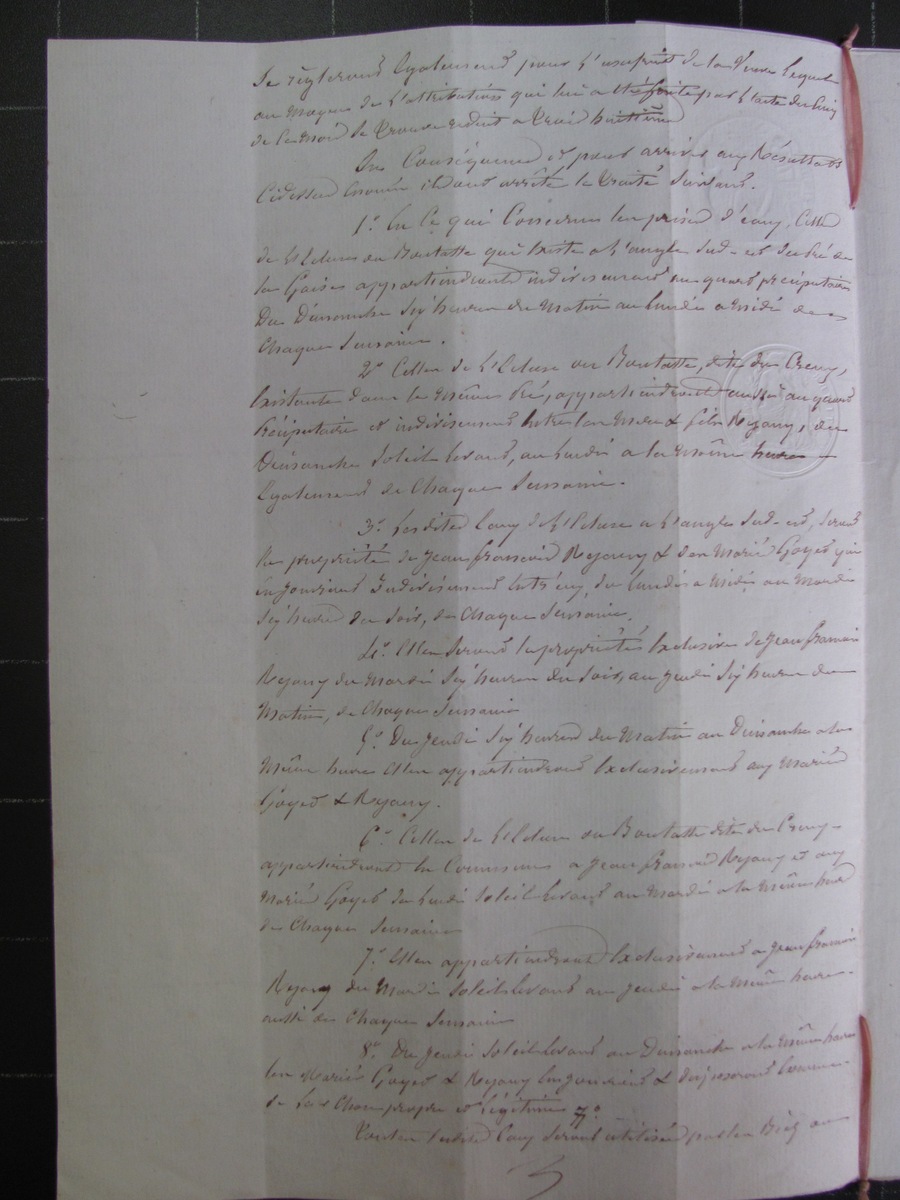 Se régleront également pour l'usufruit de la Veuve lequel
au moyen de l'attribution qui lui a été faite par l'acte du cinq
de ce mois se trouve réduit a trois huitième
En Conséquence et pour arriver aux Résultats
Cidessus énoncés ils ont arrêté le traité suivant.
1.° En Ce qui Concerne les prises d'eaux, Celle
de l'Ecluse ou Boutasse qui existe a l'angle Sud-est du Pré de
la appartiendront indivisement au quart préciputaire
Du Dimanche six heures du Matin au Lundi a midi de
Chaque Semaine.
2° Celles de l'Ecluse ou Boutasse, dite du Creux,
Existante dans le même Pré, appartiendront aussi au quart
Préciputaire et indivisement Entre les Mère & fils Rejany, du
Dimanche Soleil levant, au Lundi a la même heure
Egalement de Chaque Semaine.
3.° Lesdites Eaux de l'Ecluse a l'angle Sud-est, seront
la propriété de Jean françois Rejany & des Mariés Goyet qui
en jouiront Indivisement Entr'eux, du Lundi a Midi au Mardi
Six heures du Soir, de Chaque Semaine.
4.° Elles Seront la propriétés Exclusive de Jean francois
Rejany du Mardi Six heures du Soir, au Jeudi Six heures du
Matin, de Chaque Semaine
5.° Du Jeudi Six heures du Matin au Dimanche a la
Même heure Elles appartiendront Exclusivement aux Mariés
Goyet & Rejany.
6.° Celles de l'Ecluse ou Boutasse dite du Creux
appartiendront en Commun a Jean francois Rejany et aux
Mariés Goyet du Lundi Soleil levant au Mardi a la Même heure
de Chaque Semaine
7.° Elles appartiendront Exclusivement a Jean francois
Rejany du Mardi Soleil levant au Jeudi a la Même heure
aussi de Chaque Semaine
8.° Du Jeudi Soleil levant au Dimanche a la Même heure
les Mariés Goyet & Rejany En jouiront & disposeront Comme
de leur Chose propre et légitime
Toutes lesdites Eaux Seront utilisées par les Biez ou